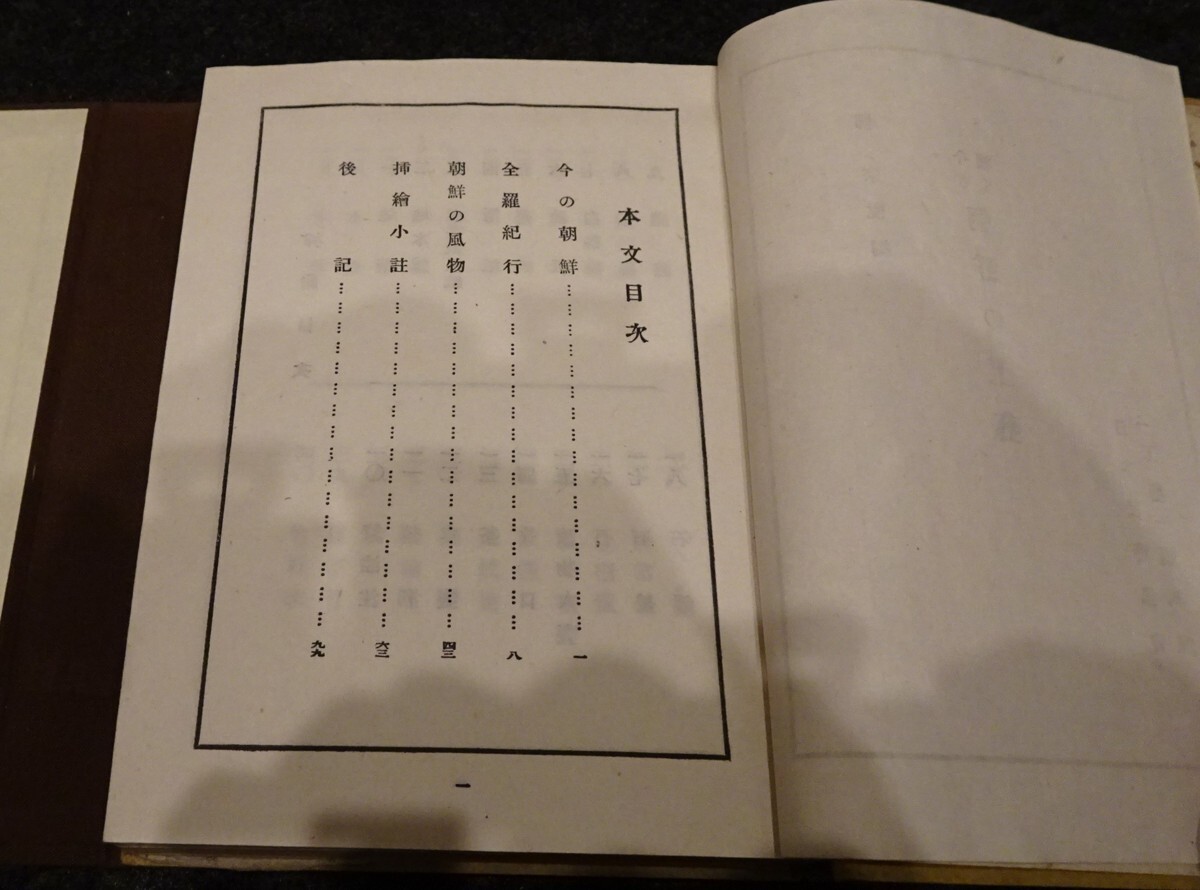 本文目次
今の朝鮮……………………………………………………一
全羅紀行……………………………………………………八
朝鮮の風物…………………………………………………四三
挿繪小註……………………………………………………六三
後記…………………………………………………………九九
一